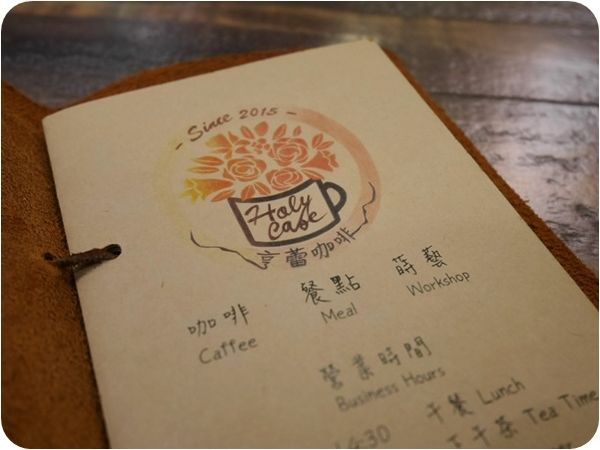 - Since 2015 -
Holy
Cafe
亨蕾咖啡
咖啡 餐點 蒔藝
Caffee Meal Workshop
營業時間
Business Hours
14:30 午餐 Lunch
下午茶 Tea Time